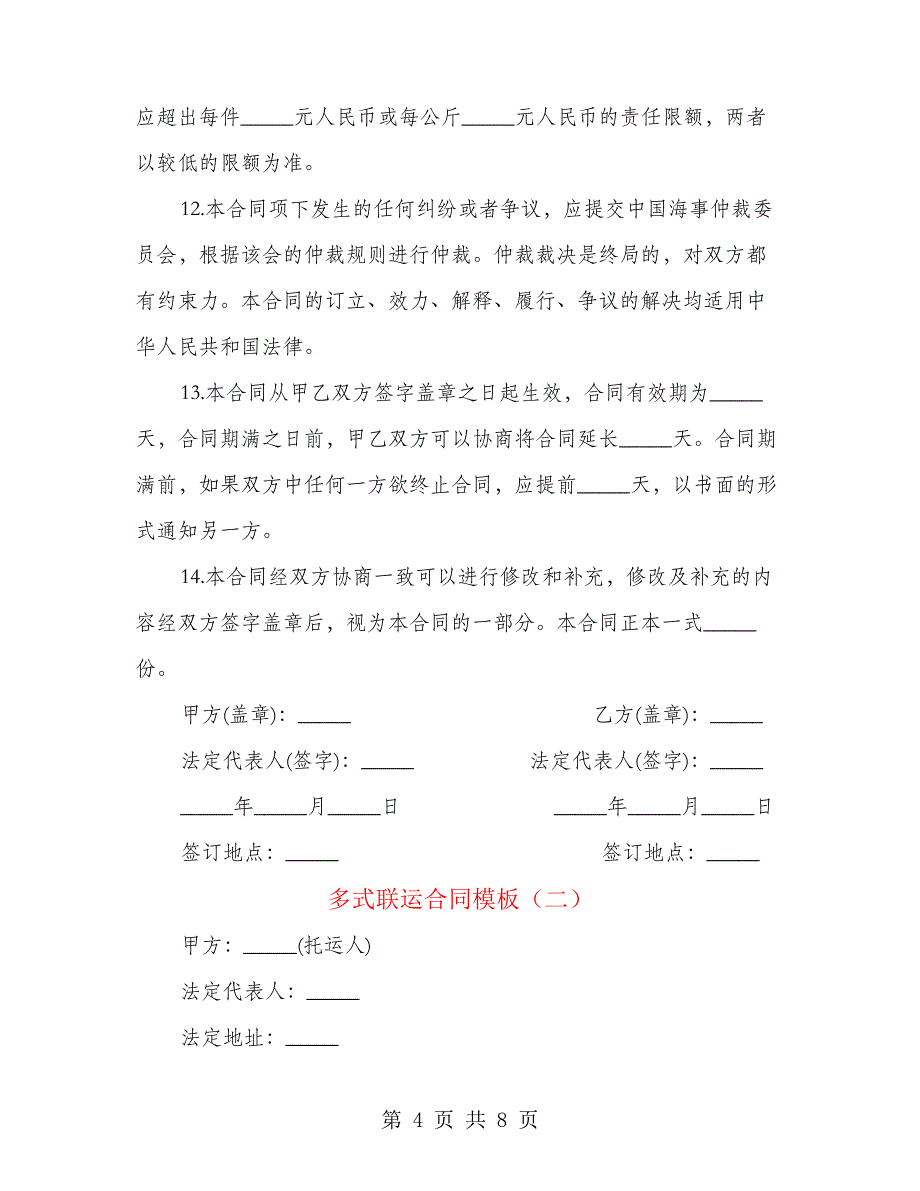 应超出每件_____元人民币或每公斤_____元人民币的责任限额，两者
以较低的限额为准。
12.本合同项下发生的任何纠纷或者争议，应提交中国海事仲裁委
员会，根据该会的仲裁规则进行仲裁。仲裁裁决是终局的，对双方都
有约束力。本合同的订立、效力、解释、履行、争议的解决均适用中
华人民共和国法律。
13.本合同从甲乙双方签字盖章之日起生效，合同有效期为_____
天，合同期满之日前，甲乙双方可以协商将合同延长_____天。合同期
满前，如果双方中任何一方欲终止合同，应提前_____天，以书面的形
式通知另一方。
14.本合同经双方协商一致可以进行修改和补充，修改及补充的内
容经双方签字盖章后，视为本合同的一部分。本合同正本一式_____
份。
甲方(盖章)：_____ 乙方(盖章)：_____
法定代表人(签字)：_____ 法定代表人(签字)：_____
_____年_____月_____日 _____年_____月_____日
签订地点：_____ 签订地点：_____
多式联运合同模板（二）
甲方：_____(托运人)
法定代表人：_____
法定地址：_____
第 4 页 共 8 页